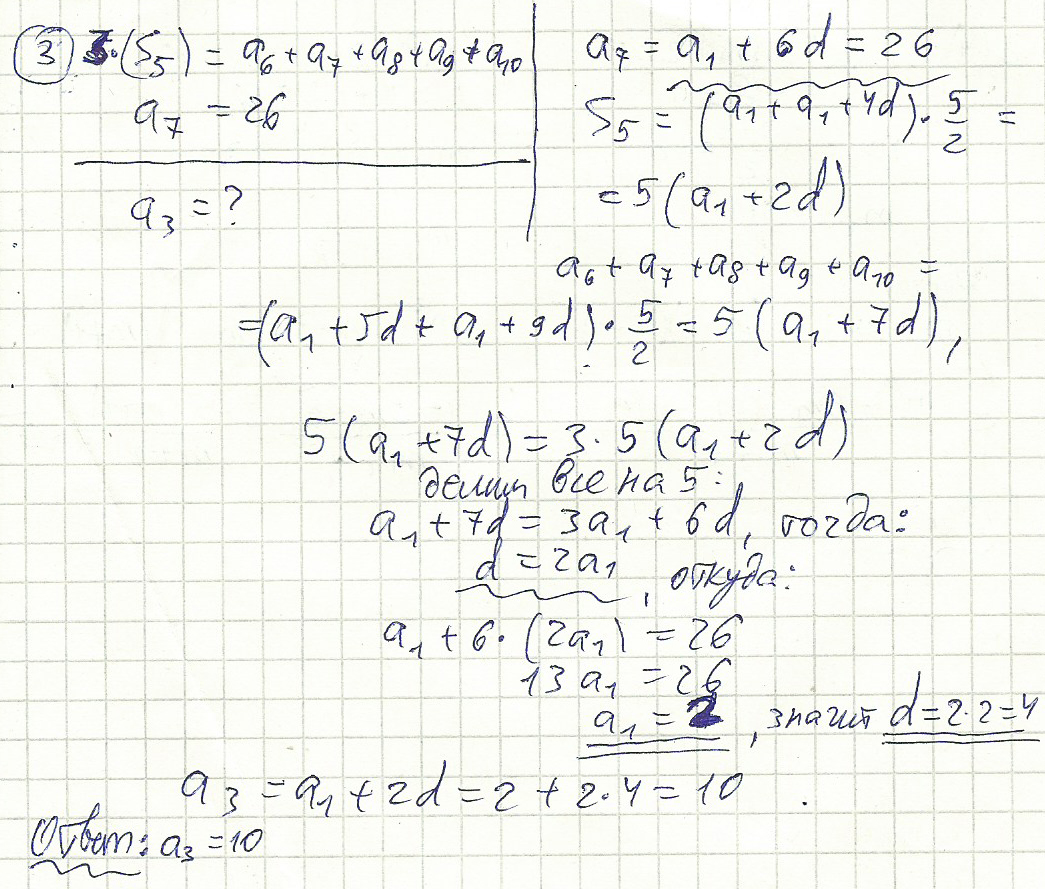 ③ 3·(S₅) = a₆ + a₇ + a₈ + a₉ + a₁₀
a₇ = 26
a₃ = ?
a₇ = a₁ + 6d = 26
S₅ = (a₁ + a₁ + 4d)·5/2 =
= 5(a₁ + 2d)
a₆ + a₇ + a₈ + a₉ + a₁₀ =
=(a₁ + 5d + a₁ + 9d)·5/2 = 5(a₁ + 7d),
5(a₁ + 7d) = 3·5(a₁ + 2d)
делим все на 5:
a₁ + 7d = 3a₁ + 6d, тогда:
d = 2a₁, откуда:
a₁ + 6·(2a₁) = 26
13a₁ = 26
a₁ = 2, значит d = 2·2 = 4
a₃ = a₁ + 2d = 2 + 2·4 = 10.
Ответ: a₃ = 10